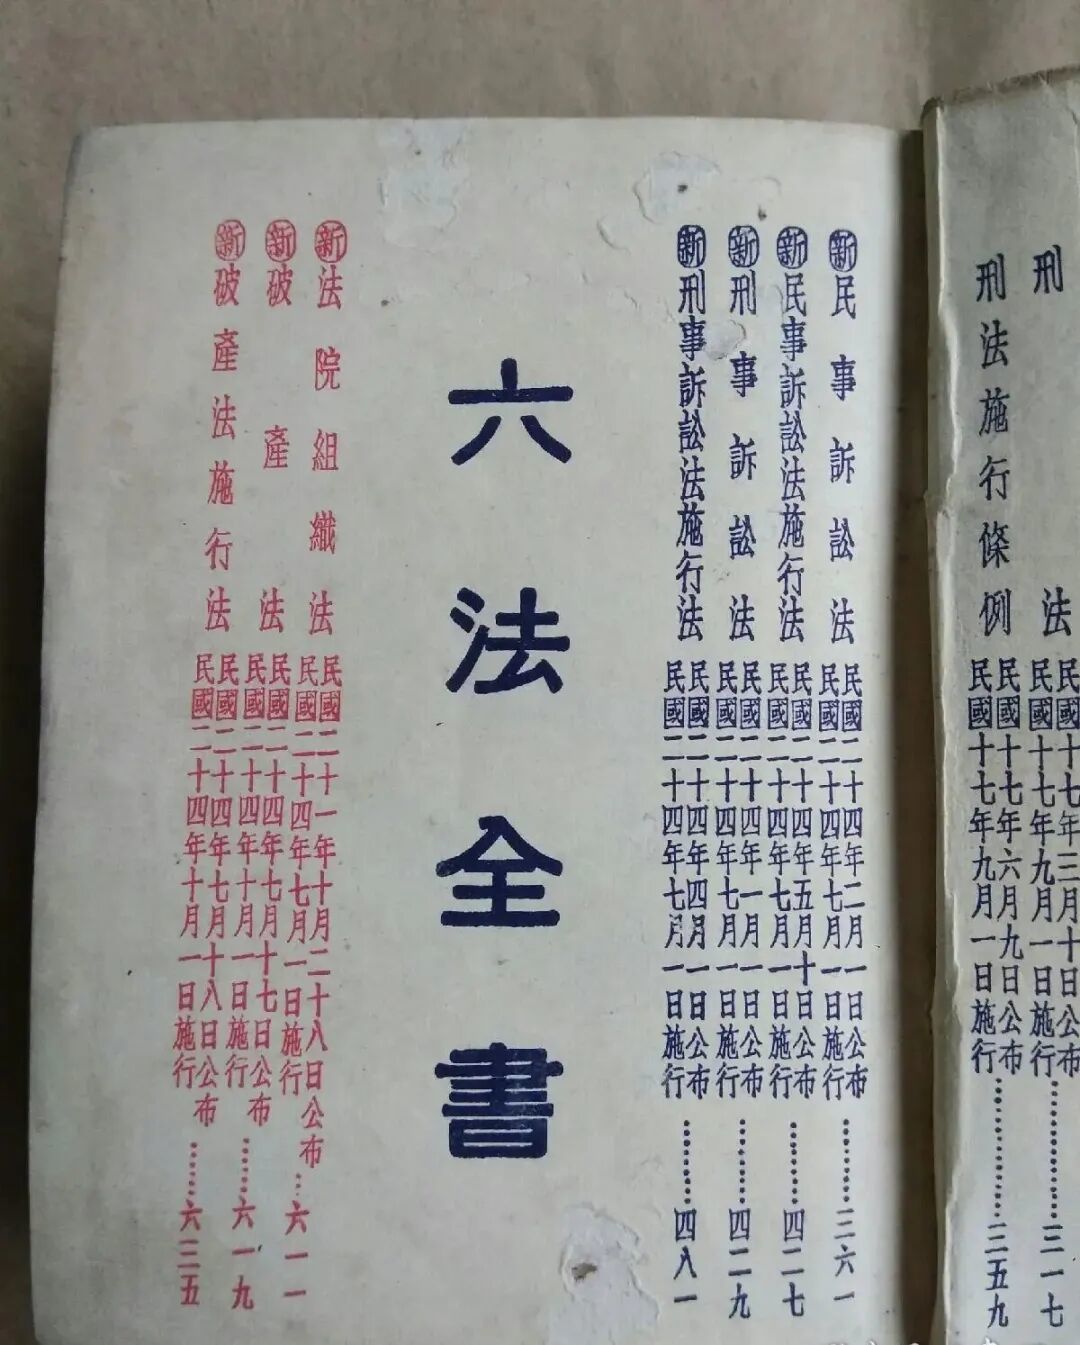 刑　法　民國十七年三月十日公布
民國十七年九月一日施行…………三一七
刑法施行條例　民國十七年六月九日公布
民國十七年九月一日施行…………三五九
新民事訴訟法　民國二十四年二月一日公布
民國二十四年七月一日施行…………三六一
新民事訴訟法施行法　民國二十四年五月十日公布
民國二十四年七月一日施行…………四二七
新刑事訴訟法　民國二十四年一月一日公布
民國二十四年七月一日施行…………四二九
新刑事訴訟法施行法　民國二十四年四月一日公布
民國二十四年七月一日施行…………四八一
六法全書
新法院組織法　民國二十一年十月二十八日公布
民國二十四年七月一日施行……六一一
新破產法　民國二十四年七月十七日公布
民國二十四年十月一日施行……六一九
新破產法施行法　民國二十四年七月十八日公布
民國二十四年十月一日施行……六三五